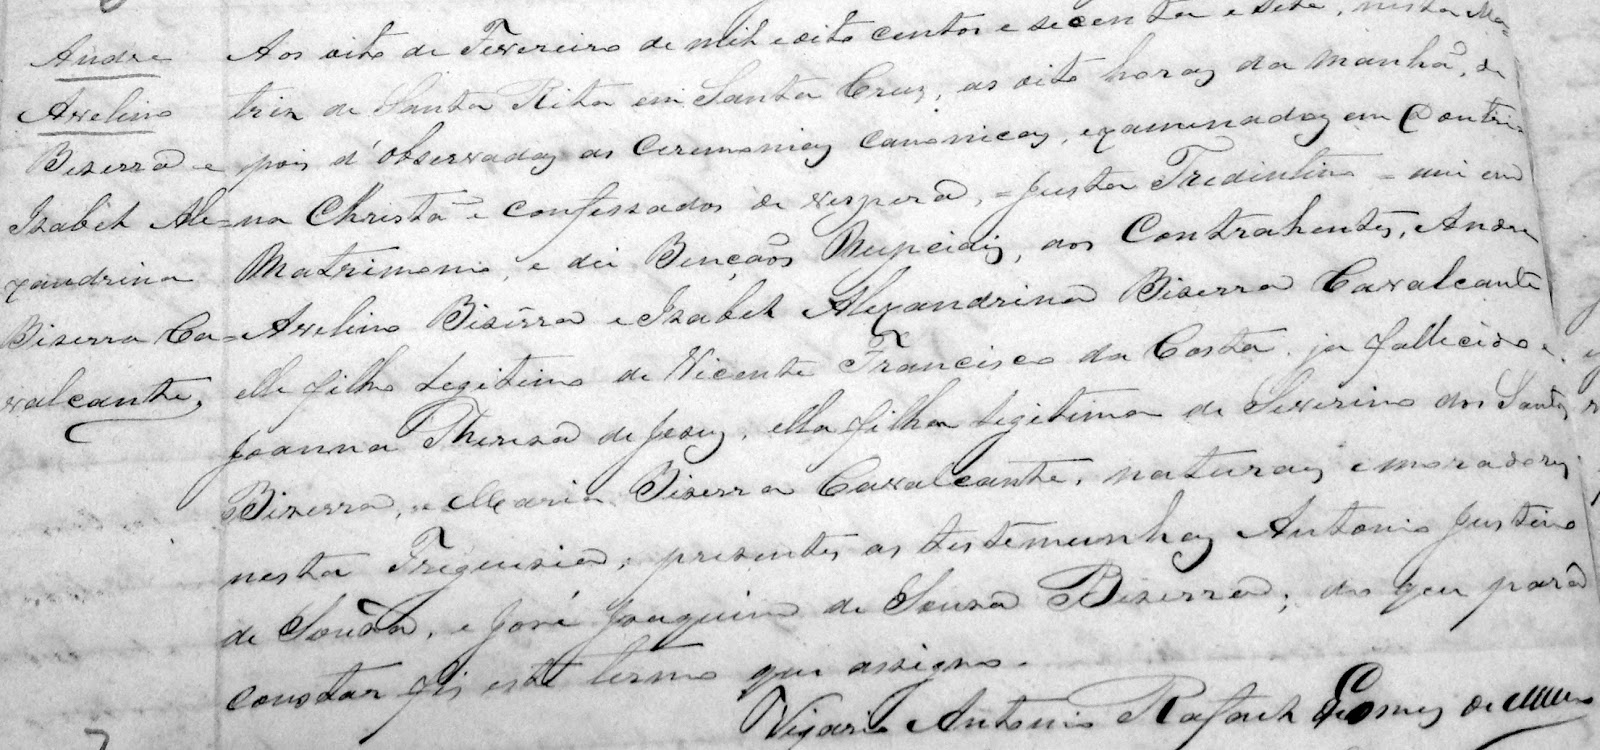 Andre
Avelino
Biserra e
Izabel Ale=
xandrina
Biserra Ca=
valcante,
Aos oito de Fevereiro de mil e oito centos e secenta e sete, nesta Ma-
triz de Santa Rita em Santa Cruz, as oito horas da manhã, de
pois d'observadas as ceremonias canonicas, examinados em Doutri
na Christã e confessados de vespera, = juxta Tredintino = uni em
Matrimonio, e dei Bençaõs Nupciais, aos Contrahentes, Andre
Avelino Biserra e Izabel Alexandrina Biserra Cavalcante
elle filho legitimo de Vicente Francisco da Costa ja fallecido e
Joanna Thereza de Jesus, ella filha legitima de Severino dos Santos
Biserra, e Maria Biserra Cavalcante, naturais e moradores
nesta Freguesia, presentes as testemunhas Antonio Justino
de Souza, e José Joaquim de Souza Biserra; do que para
constar fis este termo que assigno.
Vigario Antonio Rafael Gomes de Mello